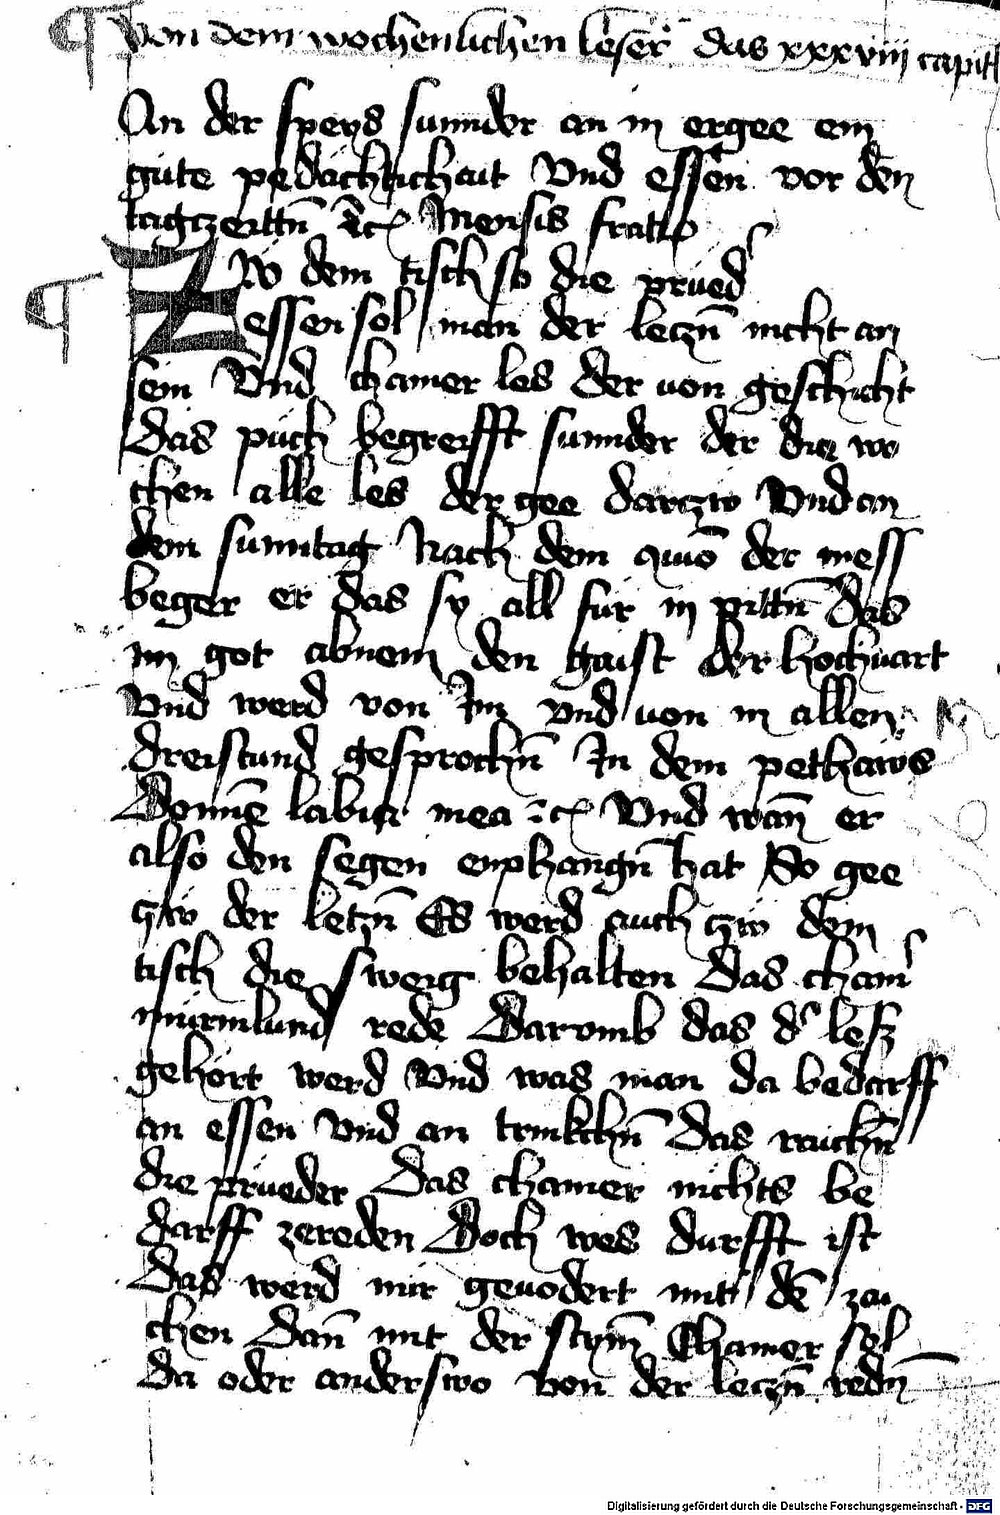 Von dem wochenlichen leser das xxxviii capitl
An der speys sunnder an in ergee ein
gute pedächtichait Vnd essen vor den
tagczeittn̄ ꝛc Mensis fratrū
Zw dem tisch so die prued
essen sol man der leczn̄ nicht an
sein Vnd chainer les der von geschicht
Das puch begreifft sunnder der die wo
chen alle les der gee darczw Vnd an
dem sunntag Nach dem der mess
beger er das sy all fur in pittn̄ Das
im got abnem den gaist der hochuart
Vnd werd von Im vnd von in allen
dreistund gesprochn̄ In dem pethaws
Domine labia mea ꝛc Vnd wan̄ er
also den segen enphangn̄ hat So gee
zw der letzn̄ Es werd auch zw dem
tisch die sweig behalten Das chain
murmlund rede Darumb das d' lesz
gehört werd Vnd was man da bedarff
an essen vnd an trinkchn̄ Das raichn̄
die prueder Das chainer nichts be
darff zereden Doch wes durfft ist
Das werd mir geuodert mit dē zai
chen Dan̄ mit der stym̄ Chainer sol
da oder anderswo von der leczn̄ redn̄
Digitalisierung gefördert durch die Deutsche Forschungsgemeinschaft - DFG